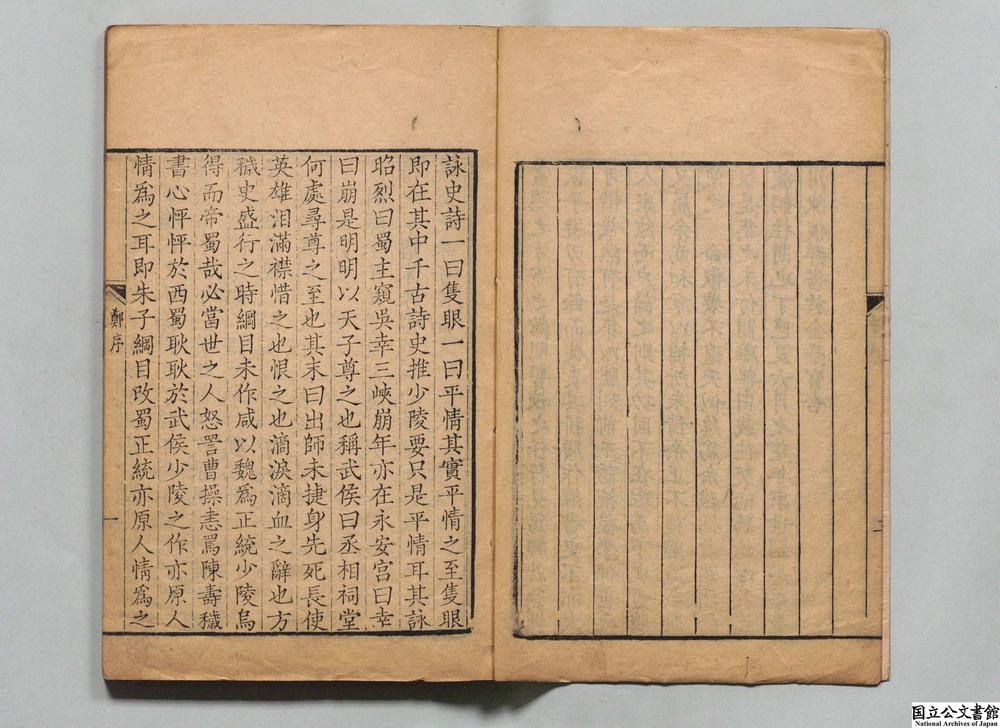 詠史詩一曰隻眼一曰平情其實平情之至隻眼
即在其中千古詩史推少陵要只是平情耳其詠
昭烈曰蜀主窺吳幸三峽崩年亦在永安宫曰幸
曰崩是明明以天子尊之也稱武侯曰丞相祠堂
何處尋尊之至也其末曰出師未捷身先死長使
英雄泪滿襟惜之也恨之也滴淚滴血之辭也方
穢史盛行之時綱目未作咸以魏爲正統少陵烏
得而帝蜀哉必當世之人怒詈曹操恚罵陳壽穢
書心怦怦於西蜀耿耿於武侯少陵之作亦原人
情爲之耳即朱子綱目改蜀正統亦原人情爲之
鄭序
一
二
国立公文書館
National Archives of Japan